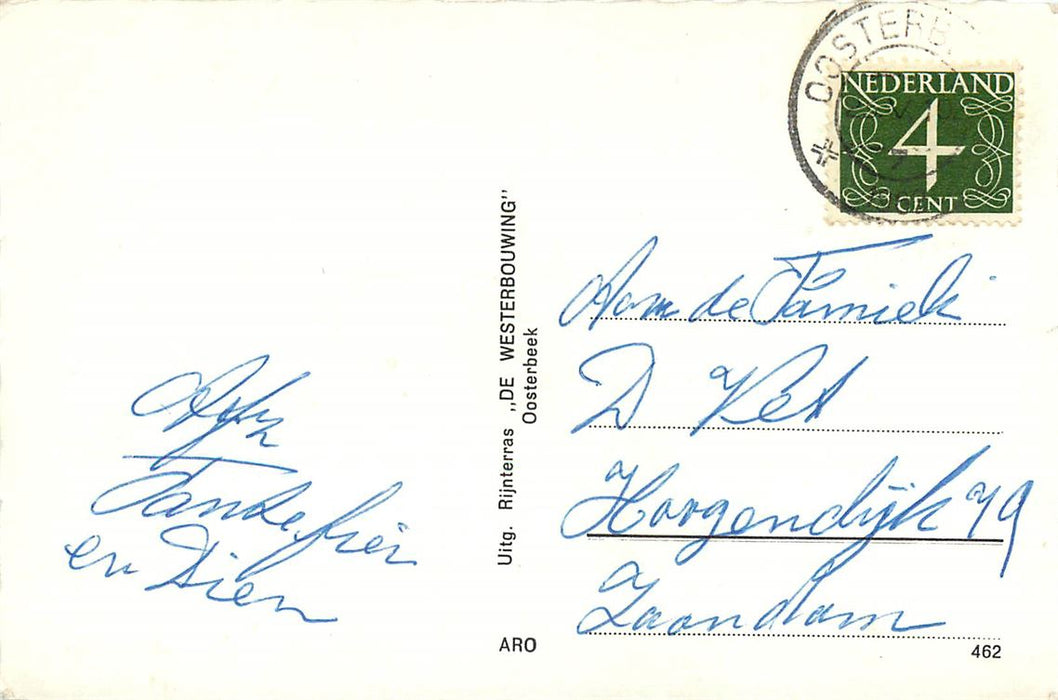 OOSTERB
NEDERLAND
4
CENT
Uitg. Rijnterras „DE WESTERBOUWING"
Oosterbeek
Aan de Famiel
D Ket
Hoogendijk 79
Zaandam
en Dien
ARO
462